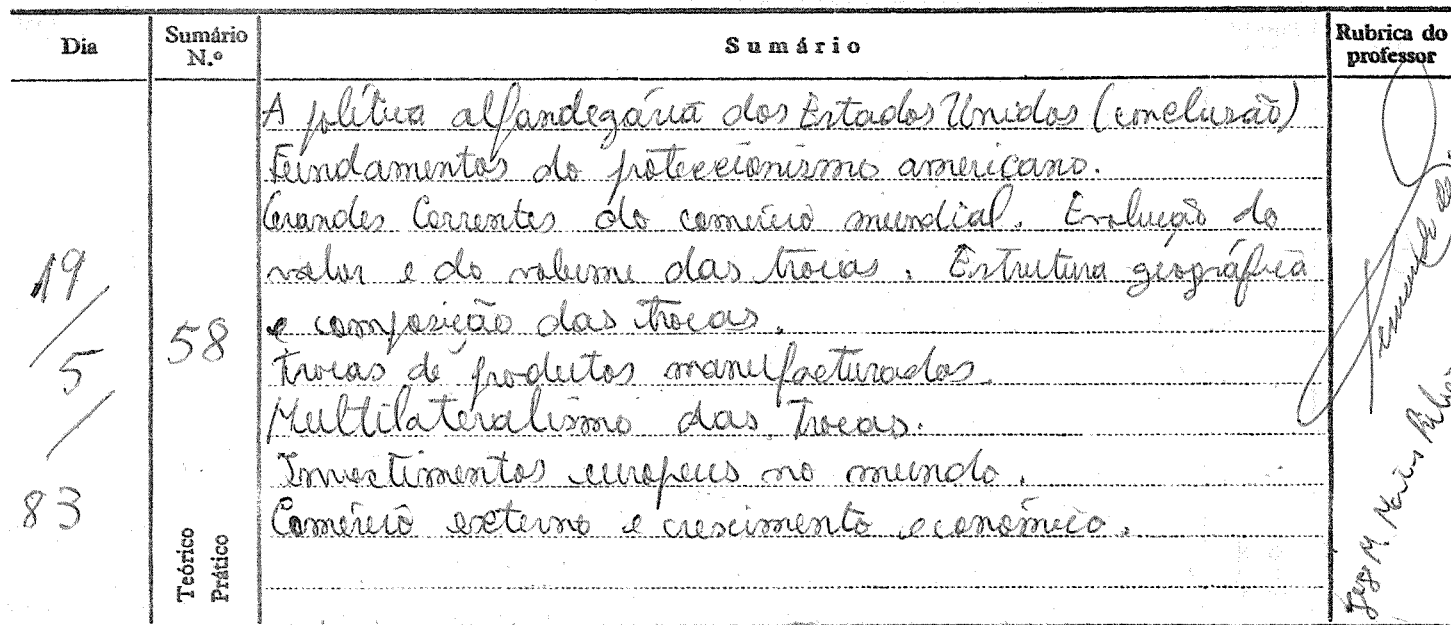 Dia
Sumário N.º
Sumário
Rubrica do professor
A política alfandegária dos Estados Unidos (conclusão)
Fundamentos do proteccionismo americano.
Grandes Correntes do comércio mundial. Evolução do
valor e do volume das trocas. Estrutura geográfica
e composição das trocas.
Trocas de produtos manufacturados.
Multilateralismo das Trocas.
Investimentos europeus no mundo.
Comércio externo e crescimento económico.
19/5/83
58
Teórico
Prático